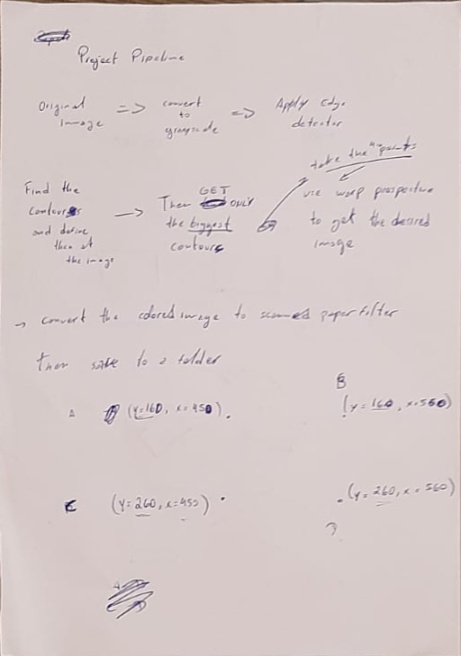 Project Pipeline
Original image => convert to grayscale => Apply edge detector
Find the contours and define them at the image -> Then GET only the biggest contours
take the 4 points
use warp prespective to get the desired image
-> convert the colored image to scanned paper filter
then save to a folder
A (y=160, x=450) .
B
(y=160, x=560)
C (y=260, x=450) .
. (y=260, x=560)